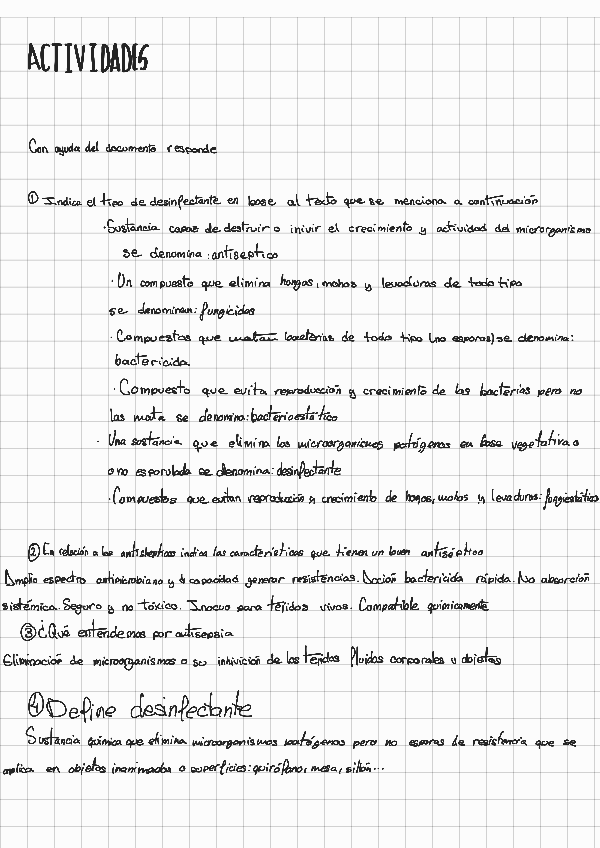 ACTIVIDADES
Con ayuda del documento responde
① Indica el tipo de desinfectante en base al texto que se menciona a continuación
·Sustancia capaz de destruir o inivir el crecimiento y actividad del microrganismo
se denomina: antiseptico
·Un compuesto que elimina hongos, mohos y levaduras de todo tipo
se denominan: fungicidas
·Compuestos que matan bacterias de todo tipo (no esporas) se denomina:
bactericida
·Compuesto que evita reproducción y crecimiento de las bacterias pero no
las mata se denomina: bacterioestático
· Una sustancia que elimina los microorganismos patógenos en base vegetativa o
o no esporulada se denomina: desinfectante
·Compuestos que evitan reproducción y crecimiento de hogos, mohos y levaduras: fungiestático
② En relación a los antisépticos indica las características que tienen un buen antiséptico
Amplio espectro antimicrobiano y capacidad generar resistencias. Acción bactericida rápida. No absorción
sistémica. Seguro y no tóxico. Inocuo para tejidos vivos. Compatible químicamente
③ ¿Qué entendemos por antisepsia
Eliminación de microorganismos o su inhivición de los tejidos fluidos corporales u objetos
④ Define desinfectante
Sustancia química que elimina microorganismos patógenos pero no esporas de resistencia que se
aplica en objetos inanimados o superficies: quirófano, mesa, sillón...